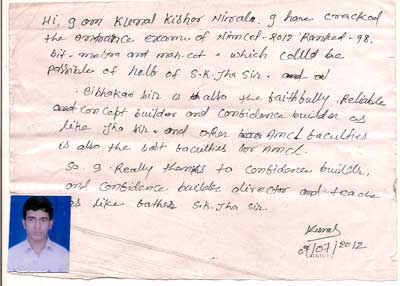 Hi, I am Kunal Kishor Nirala. I have cracked
the entrance exam of Nimcet-2012 Ranked-98,
bit-mesra and mah-cet. which could be
possible of help of S.K.Jha Sir.
Bibhakar sir is also the faithfully, Reliable
and concept builder and confidence builder as
like Jha sir. and other Amcl faculties
is also the best faculties for Amcl.
So I Really thanks to confidence builder,
and confidence builder director and teache
as like father S.K.Jha Sir.
Kunal
07/07/2012